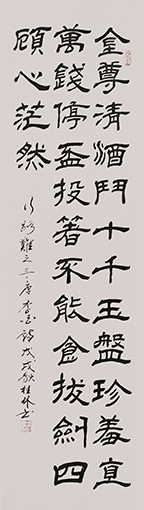 金尊清酒鬥十千玉盤珍羞直
萬錢停盃投箸不能食拔劍四
顧心茫然
行路難之三唐李白詩戊戌秋桂林書